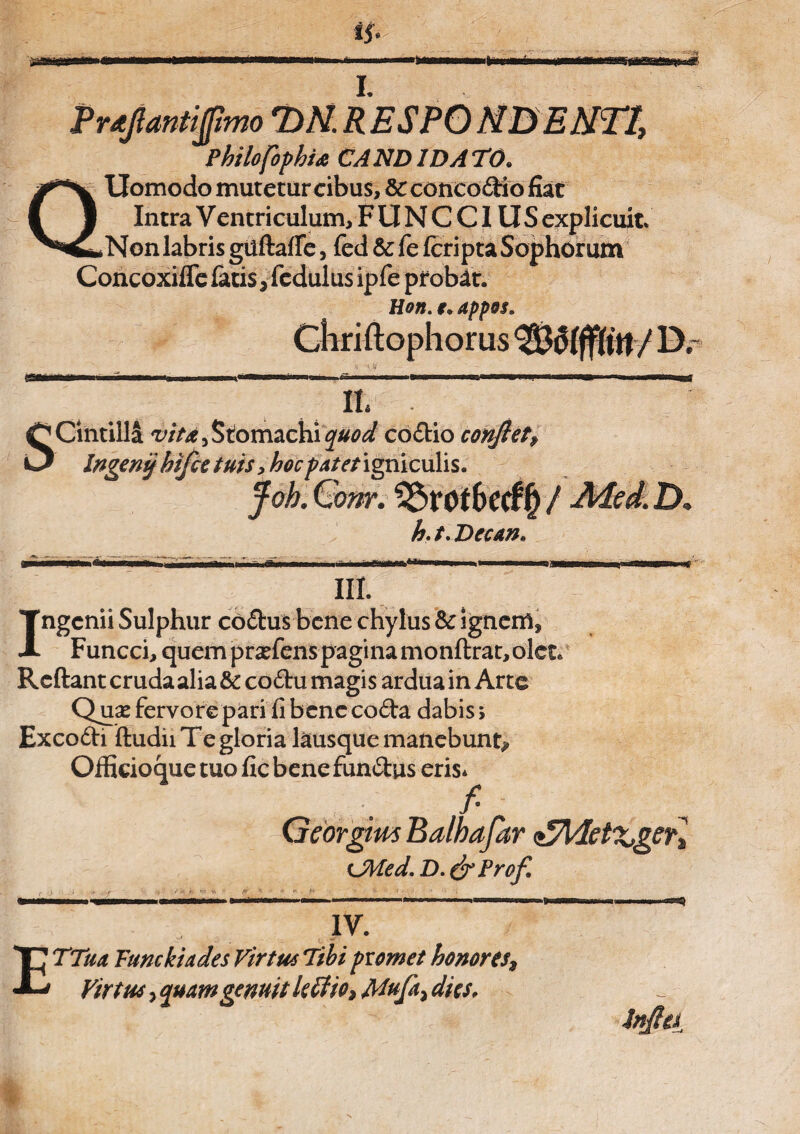 15.
I.
Præſtantiſſimo DN. RESPONDENTI,
Philoſophiæ CANDIDATO.
QUomodo mutetur cibus, & concoctio fiat
Intra Ventriculum, FUNCCIUS explicuit.
Non labris guſtaſſe, ſed & ſe ſcripta Sophorum
Concoxiſſe ſatis, ſedulus ipſe probat.
Hon. e. appos.
Chriſtophorus Wölfflin / D.
II.
SCintillâ vitæ, Stomachi quod coctio conſtet,
Ingenij hiſce tuis, hoc patet igniculis.
Joh. Conr. Brotbeckh / Med. D.
h. t. Decan.
III.
Ingenii Sulphur coctus bene chylus & ignem,
Funcci, quem præſens pagina monſtrat, olet.
Reſtant cruda alia & coctu magis ardua in Arte
Quæ fervore pari ſi bene cocta dabis;
Excocti ſtudii Te gloria lausque manebunt,
Officioque tuo ſic bene functus eris.
f.
Georgius Balthaſar Metzger,
Med. D. & Prof.
IV.
ET Tua Funckiades Virtus Tibi promet honores,
Virtus, quam genuit lectio, Muſa, dies.
Inſtes